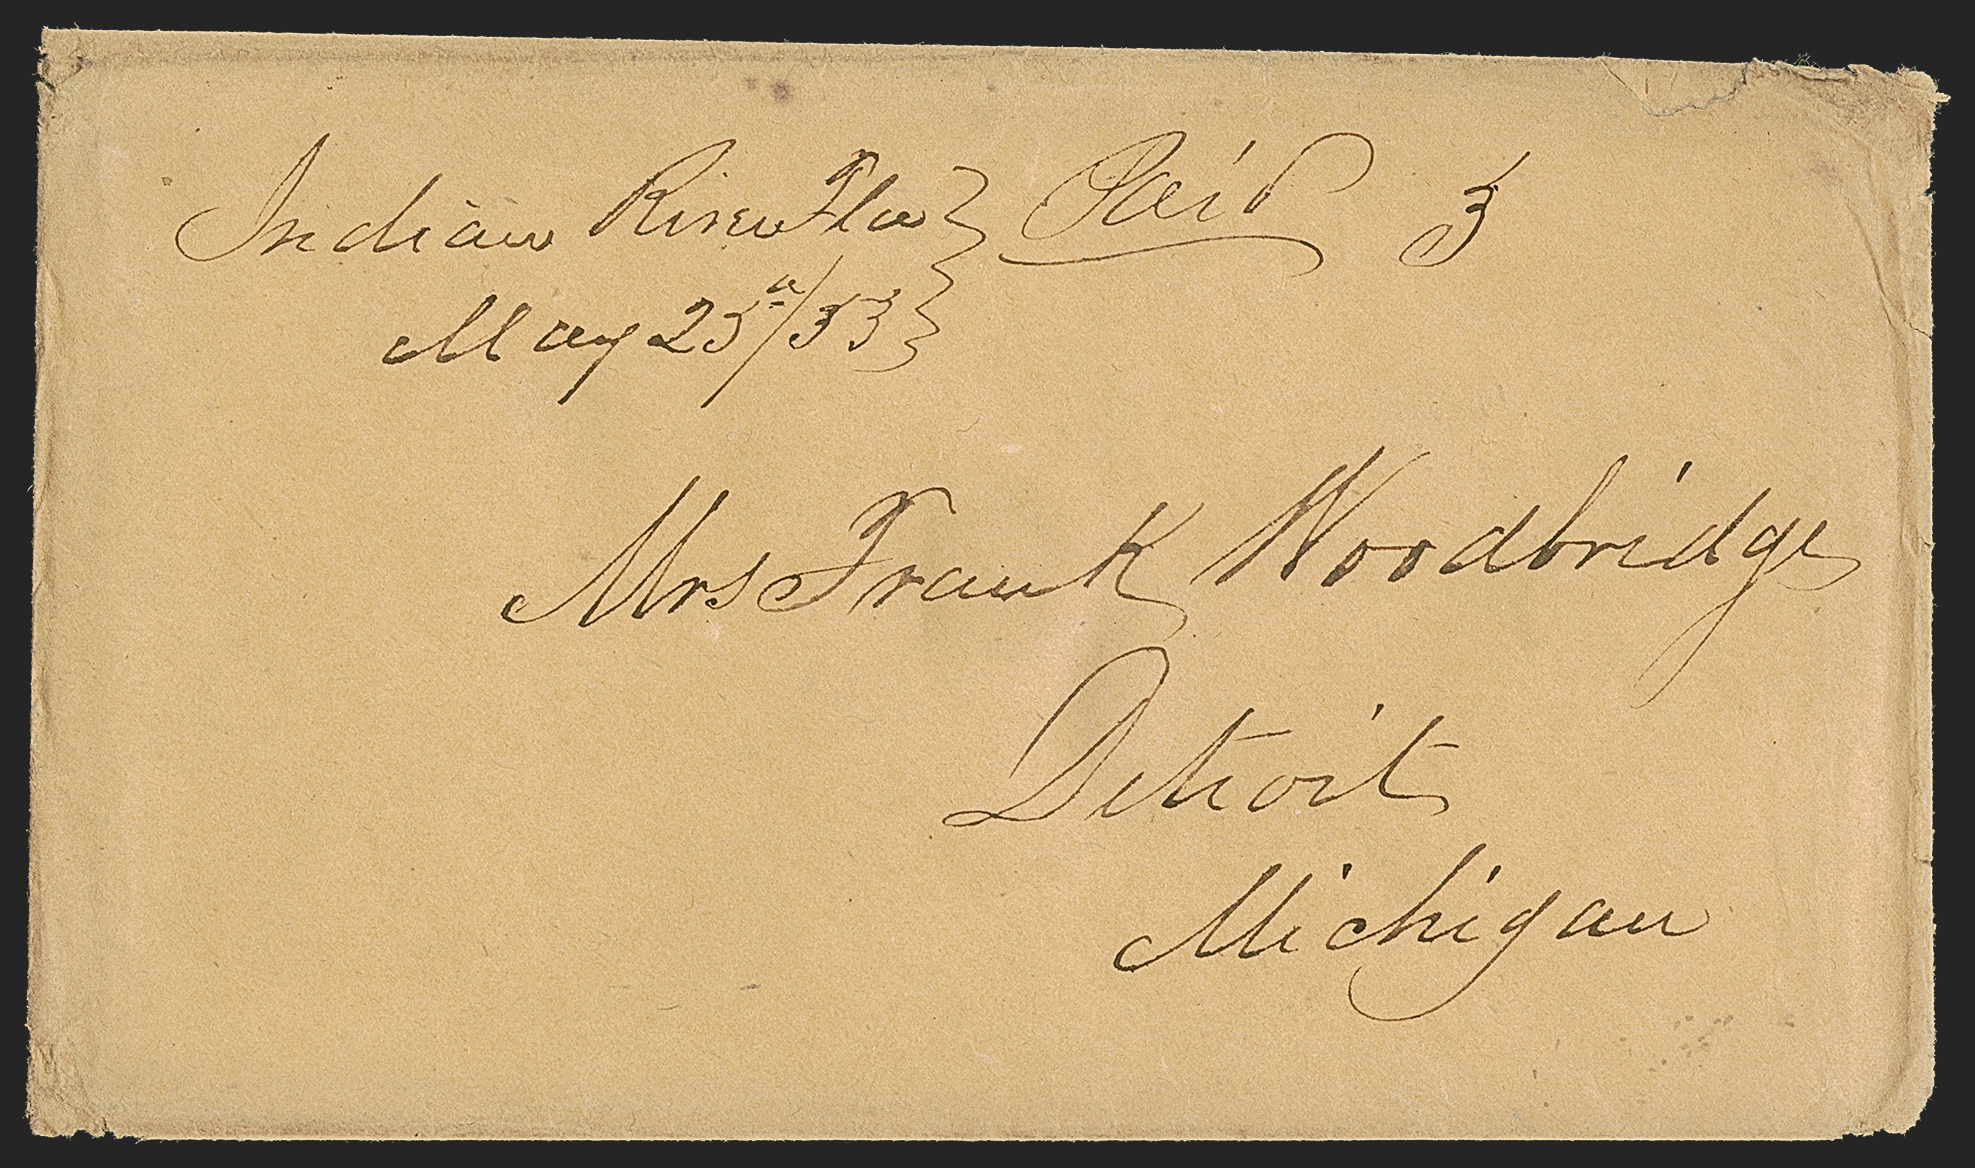 Indian River Fla } Paid 3
May 25th/53 }
Mrs Frank Woodbridge
Detroit
Michigan